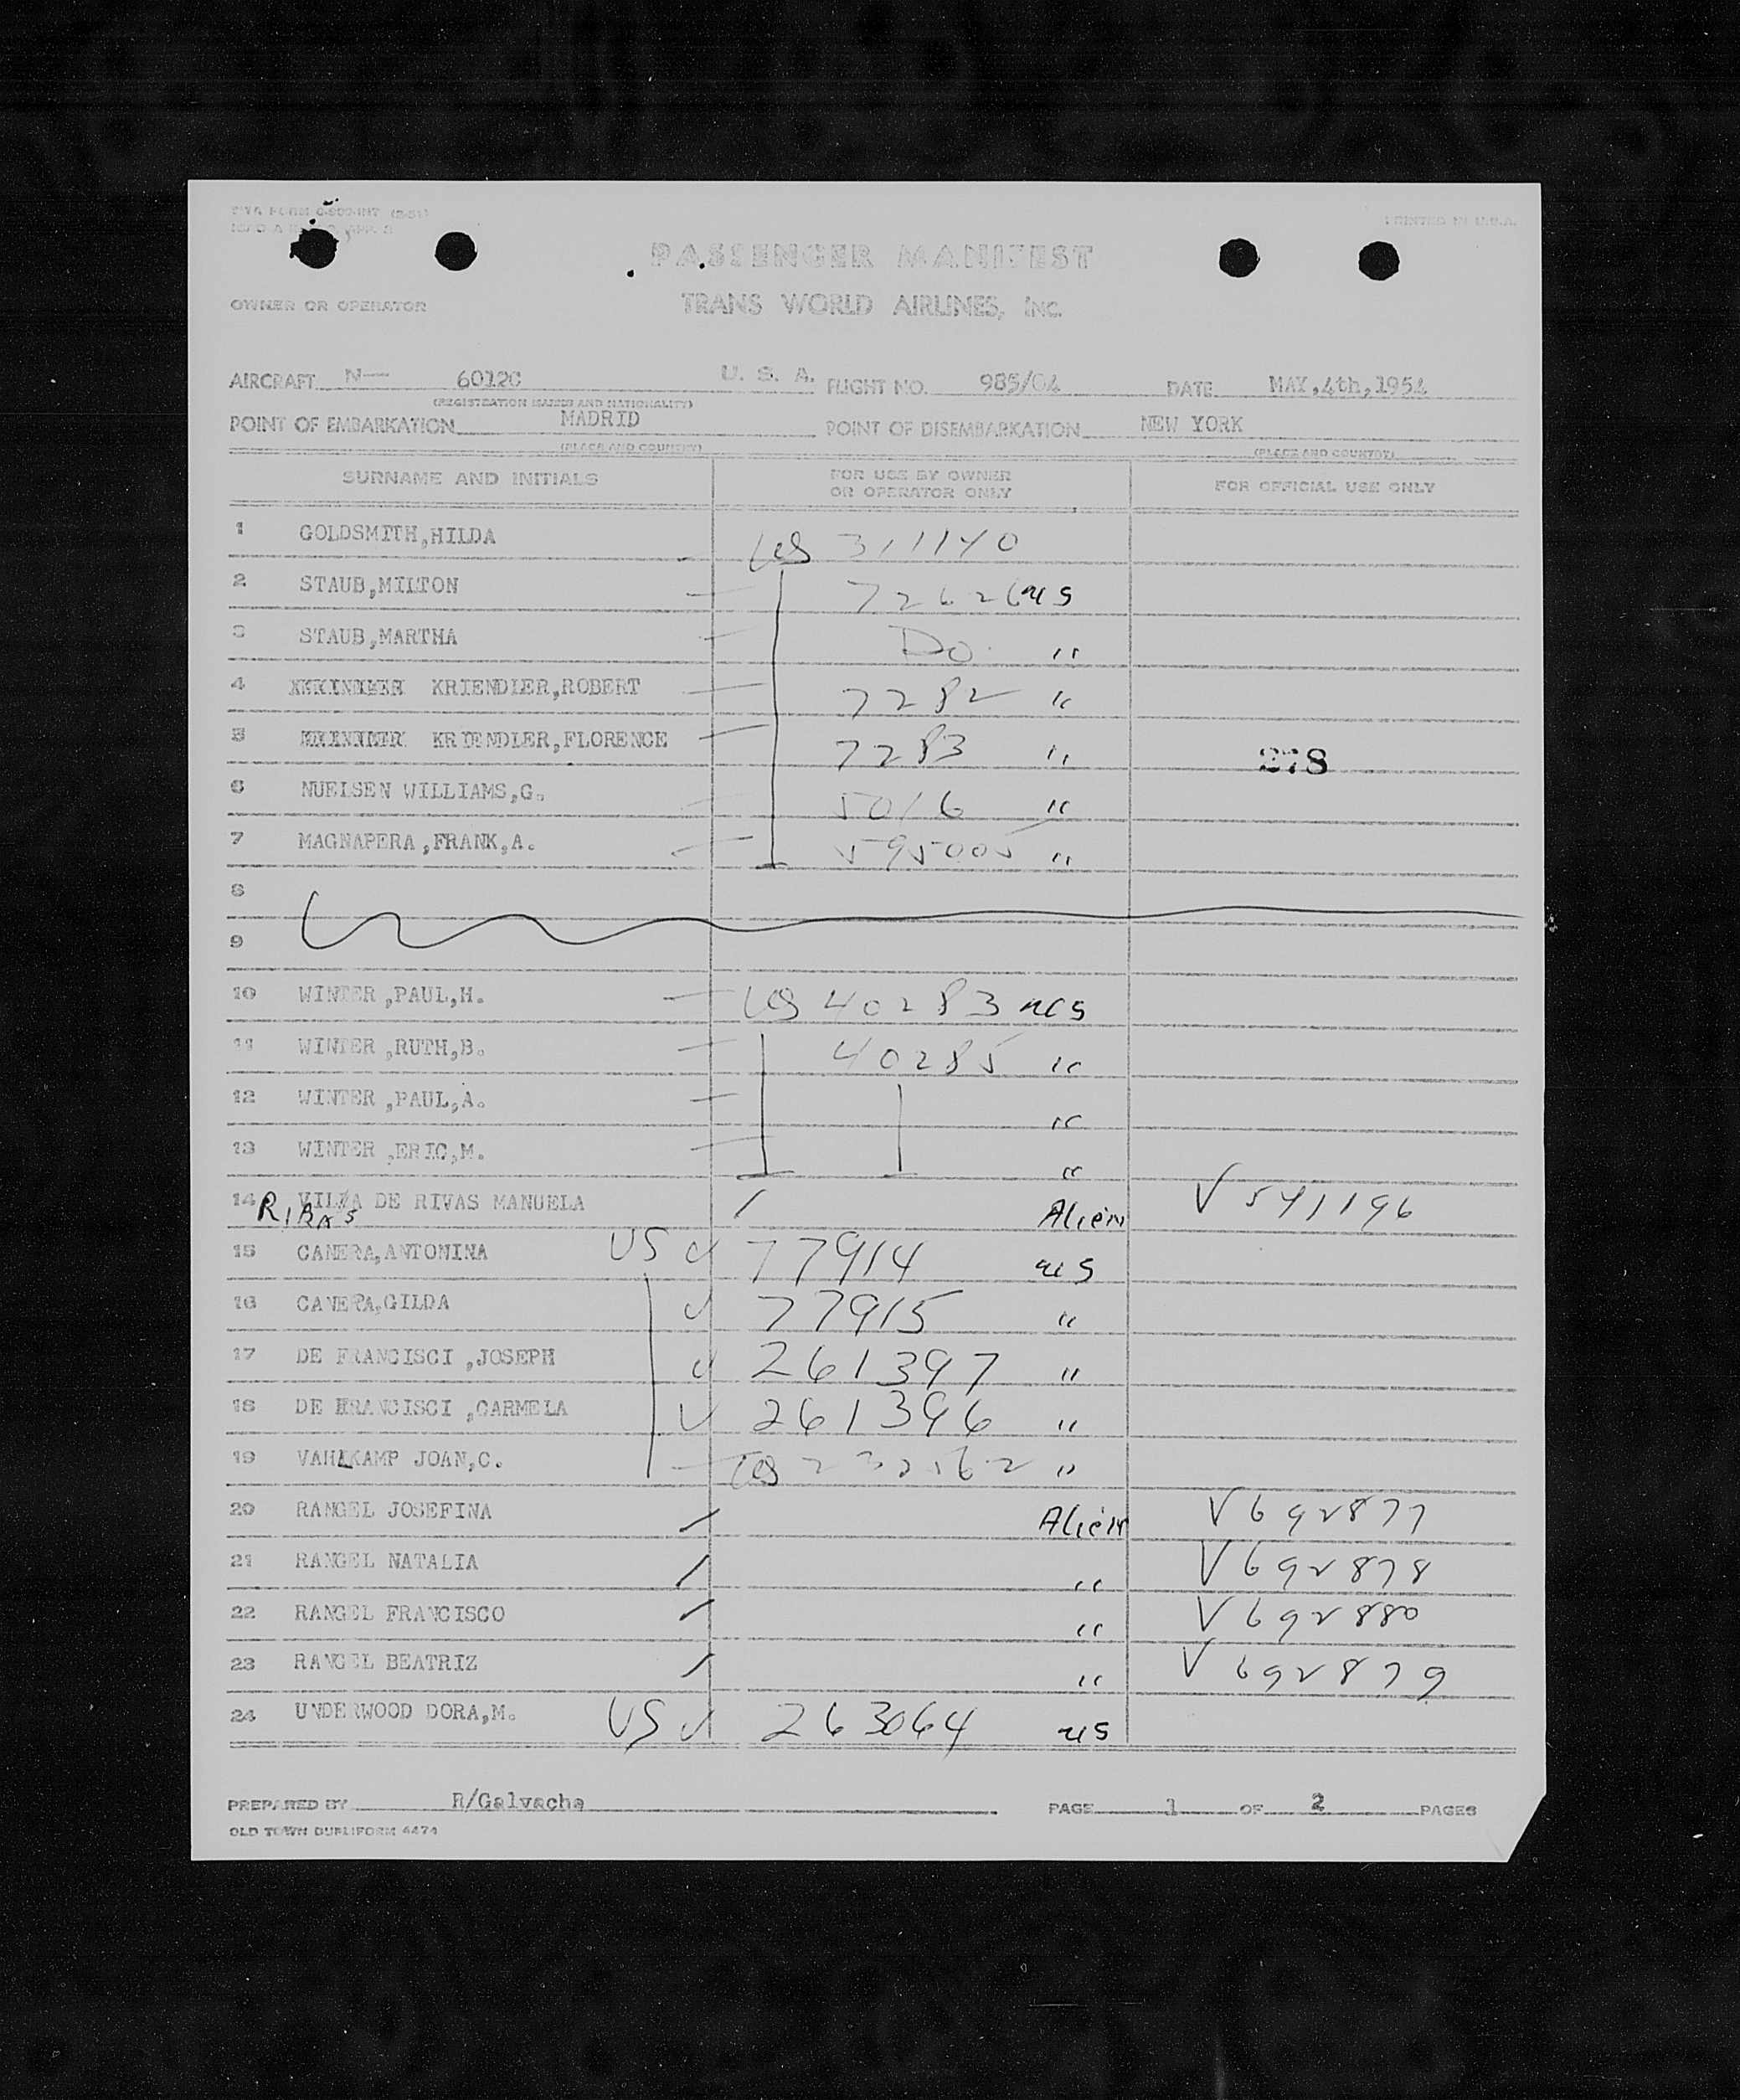 TWA FORM
PRINTED IN U.S.A.
PASSENGER MANIFEST
OWNER OR OPERATOR TRANS WORLD AIRLINES, INC.
AIRCRAFT N— 6012C U. S. A. FLIGHT NO. 985/04 DATE MAY,4th,1954
(REGISTRATION MARKS AND NATIONALITY)
POINT OF EMBARKATION MADRID POINT OF DISEMBARKATION NEW YORK
(PLACE AND COUNTRY) (PLACE AND COUNTRY)
SURNAME AND INITIALS FOR USE BY OWNER OR OPERATOR ONLY FOR OFFICIAL USE ONLY
1 GOLDSMITH,HILDA US 311140
2 STAUB,MILTON US
3 STAUB,MARTHA Do. "
4 KRIENDLER,ROBERT 7282 "
5 KRIENDLER,FLORENCE 7283 " 278
6 NUELSEN WILLIAMS,G. 5016 "
7 MAGNAPERA,FRANK,A. 595005 "
8
9
10 WINTER,PAUL,H. US 40283 US
11 WINTER,RUTH,B. 40285 "
12 WINTER,PAUL,A. "
13 WINTER,ERIC,M. "
14 DE RIVAS MANUELA Alien V 541196
RIBAS
15 CANERA,ANTONINA US 77914 US
16 CANERA,GILDA 77915 "
17 DE FRANCISCI,JOSEPH 261397 "
18 DE FRANCISCI,CARMELA 261396 "
19 VAHLKAMP JOAN,C. US "
20 RANGEL JOSEFINA Alien V 692877
21 RANGEL NATALIA " V 692878
22 RANGEL FRANCISCO " V 692880
23 RANGEL BEATRIZ " V 692879
24 UNDERWOOD DORA,M. US 263064 US
PREPARED BY R/Galvache PAGE 1 OF 2 PAGES
OLD TOWN DUPLIFORM 4474